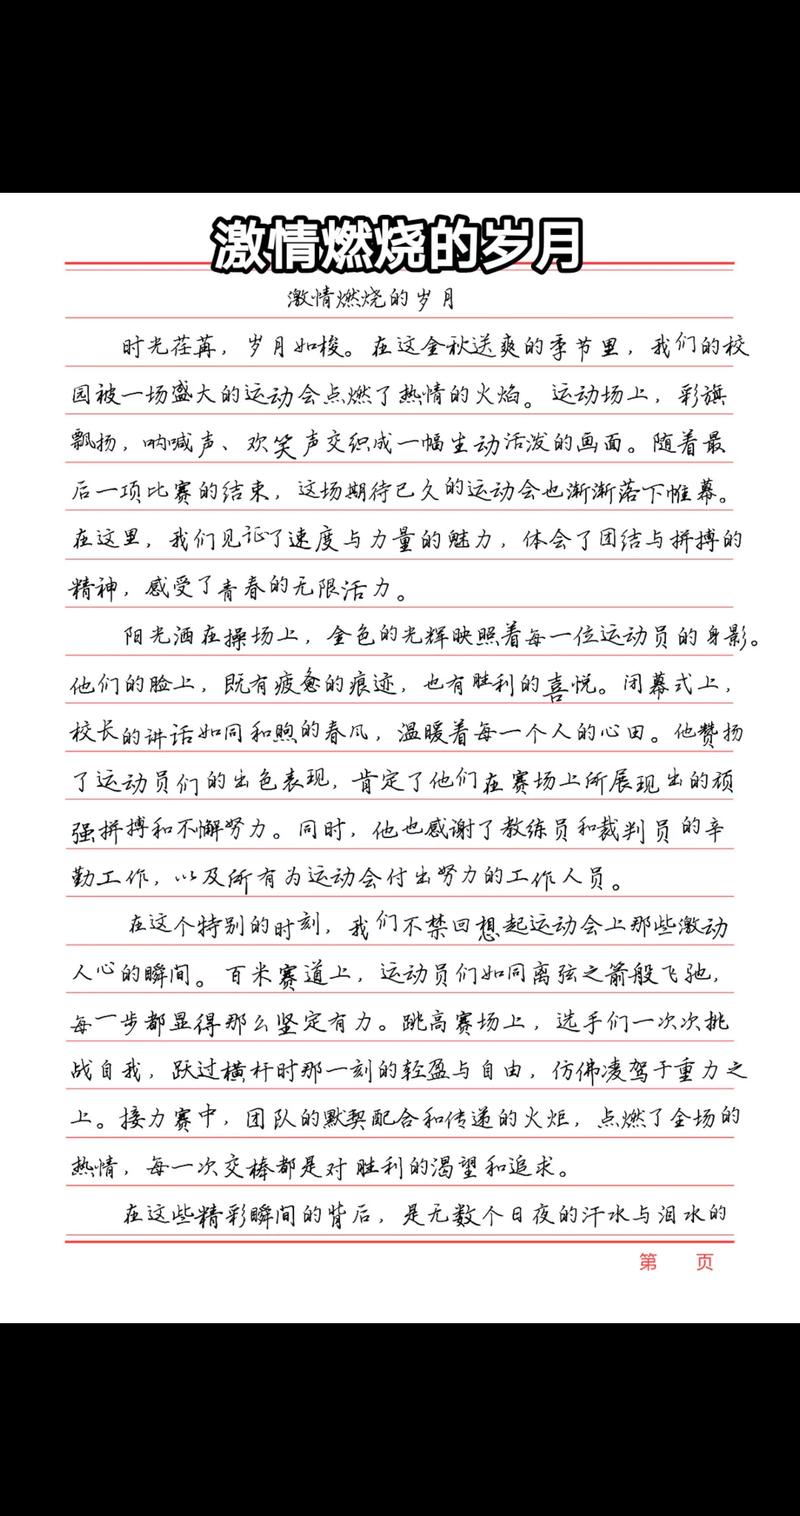 激情燃烧的岁月
激情燃烧的岁月
时光荏苒，岁月如梭。在这金秋送爽的季节里，我们的校
园被一场盛大的运动会点燃了热情的火焰。运动场上，彩旗
飘扬，呐喊声、欢笑声交织成一幅生动活泼的画面。随着最
后一项比赛的结束，这场期待已久的运动会也渐渐落下帷幕。
在这里，我们见证了速度与力量的魅力，体会了团结与拼搏的
精神，感受了青春的无限活力。
阳光洒在操场上，金色的光辉映照着每一位运动员的身影。
他们的脸上，既有疲惫的痕迹，也有胜利的喜悦。闭幕式上，
校长的讲话如同和煦的春风，温暖着每一个人的心田。他赞扬
了运动员们的出色表现，肯定了他们在赛场上所展现出的顽
强拼搏和不懈努力。同时，他也感谢了教练员和裁判员的辛
勤工作，以及所有为运动会付出努力的工作人员。
在这个特别的时刻，我们不禁回想起运动会上那些激动
人心的瞬间。百米赛道上，运动员们如同离弦之箭般飞驰，
每一步都显得那么坚定有力。跳高赛场上，选手们一次次挑
战自我，跃过横杆时那一刻的轻盈与自由，仿佛凌驾于重力之
上。接力赛中，团队的默契配合和传递的火炬，点燃了全场的
热情，每一次交棒都是对胜利的渴望和追求。
在这些精彩瞬间的背后，是无数个日夜的汗水与泪水的
第 页